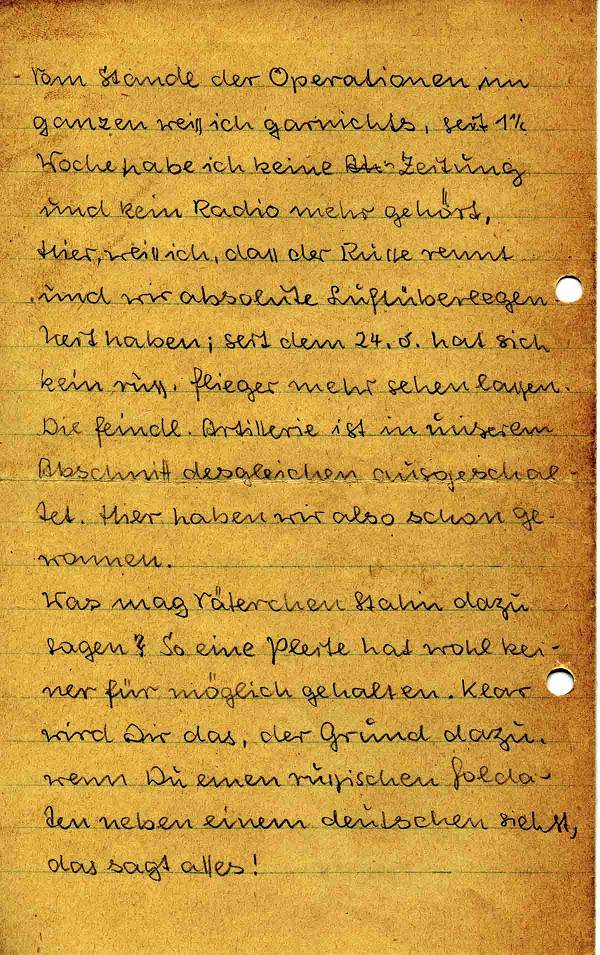 Vom Stande der Operationen im
ganzen weiß ich garnichts, seit 1½
Woche habe ich keine Zeitung
und kein Radio mehr gehört,
Hier, weiß ich, daß der Russe rennt
und wir absolute Luftüberlegen
heit haben; seit dem 24. 6. hat sich
kein russ. Flieger mehr sehen lassen.
Die feindl. Artillerie ist in unserem
Abschnitt desgleichen ausgeschal-
tet. Hier haben wir also schon ge-
wonnen.
Was mag Väterchen Stalin dazu
sagen? So eine Pleite hat wohl kei-
ner für möglich gehalten. Klar
wird Dir das, der Grund dazu,
wenn Du einen russischen Solda-
ten neben einem deutschen siehst,
das sagt alles!